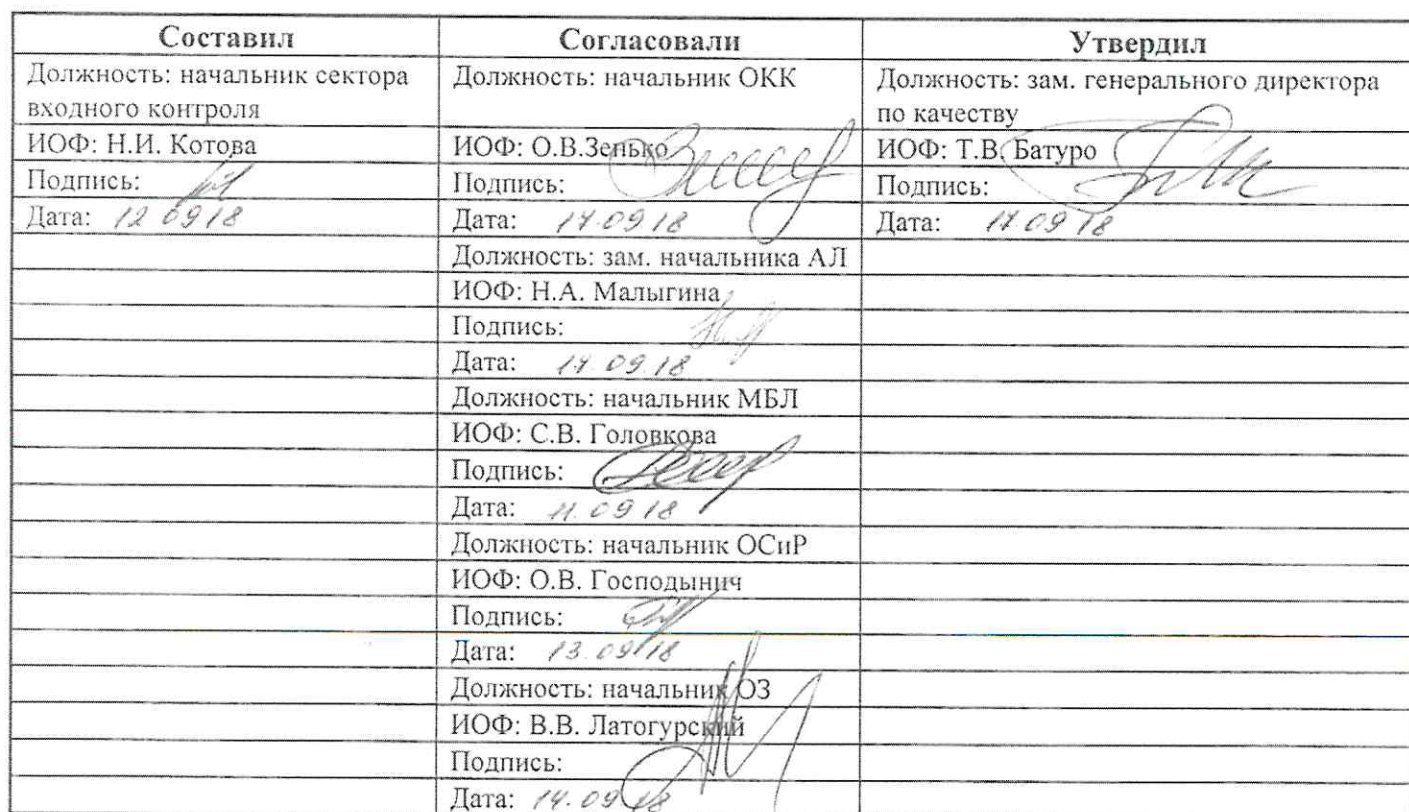 Составил Согласовали Утвердил
Должность: начальник сектора Должность: начальник ОКК Должность: зам. генерального директора
входного контроля по качеству
ИОФ: Н.И. Котова ИОФ: О.В.Зенько ИОФ: Т.В. Батуро
Подпись: Подпись: Подпись:
Дата: 12 09 18 Дата: 17.09 18 Дата: 17.09 18
Должность: зам. начальника АЛ
ИОФ: Н.А. Малыгина
Подпись:
Дата: 17.09.18
Должность: начальник МБЛ
ИОФ: С.В. Головкова
Подпись:
Дата: 09 18
Должность: начальник ОСиР
ИОФ: О.В. Господынич
Подпись:
Дата: 13.09 18
Должность: начальник ОЗ
ИОФ: В.В. Латогурский
Подпись:
Дата: 14.09 18